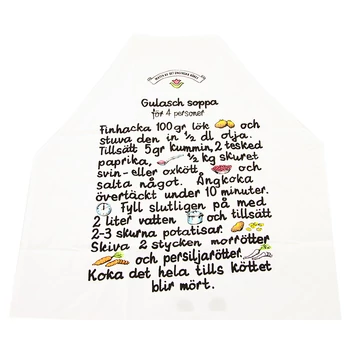 Gulasch soppa
för 4 personer
Finhacka 100 gr lök och
stuva den in ½ dl olja.
Tillsätt 5 gr kummin, 2 tesked
paprika, ½ kg skuret
svin- eller oxkött och
salta något. Ångkoka
övertäckt under 10 minuter.
Fyll slutligen på med
2 liter vatten och tillsätt
2-3 skurna potatisar.
Skiva 2 stycken morrötter
och persiljarötter.
Koka det hela tills köttet
blir mört.